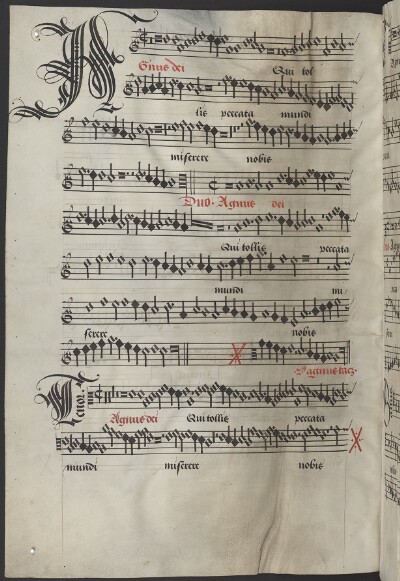 Agnus dei Qui tol
lis peccata mundi
miserere nobis
Duo. Agnus dei
Qui tollis peccata
mundi mi
serere nobis
Tenor.
Agnus dei Qui tollis peccata
mundi miserere nobis